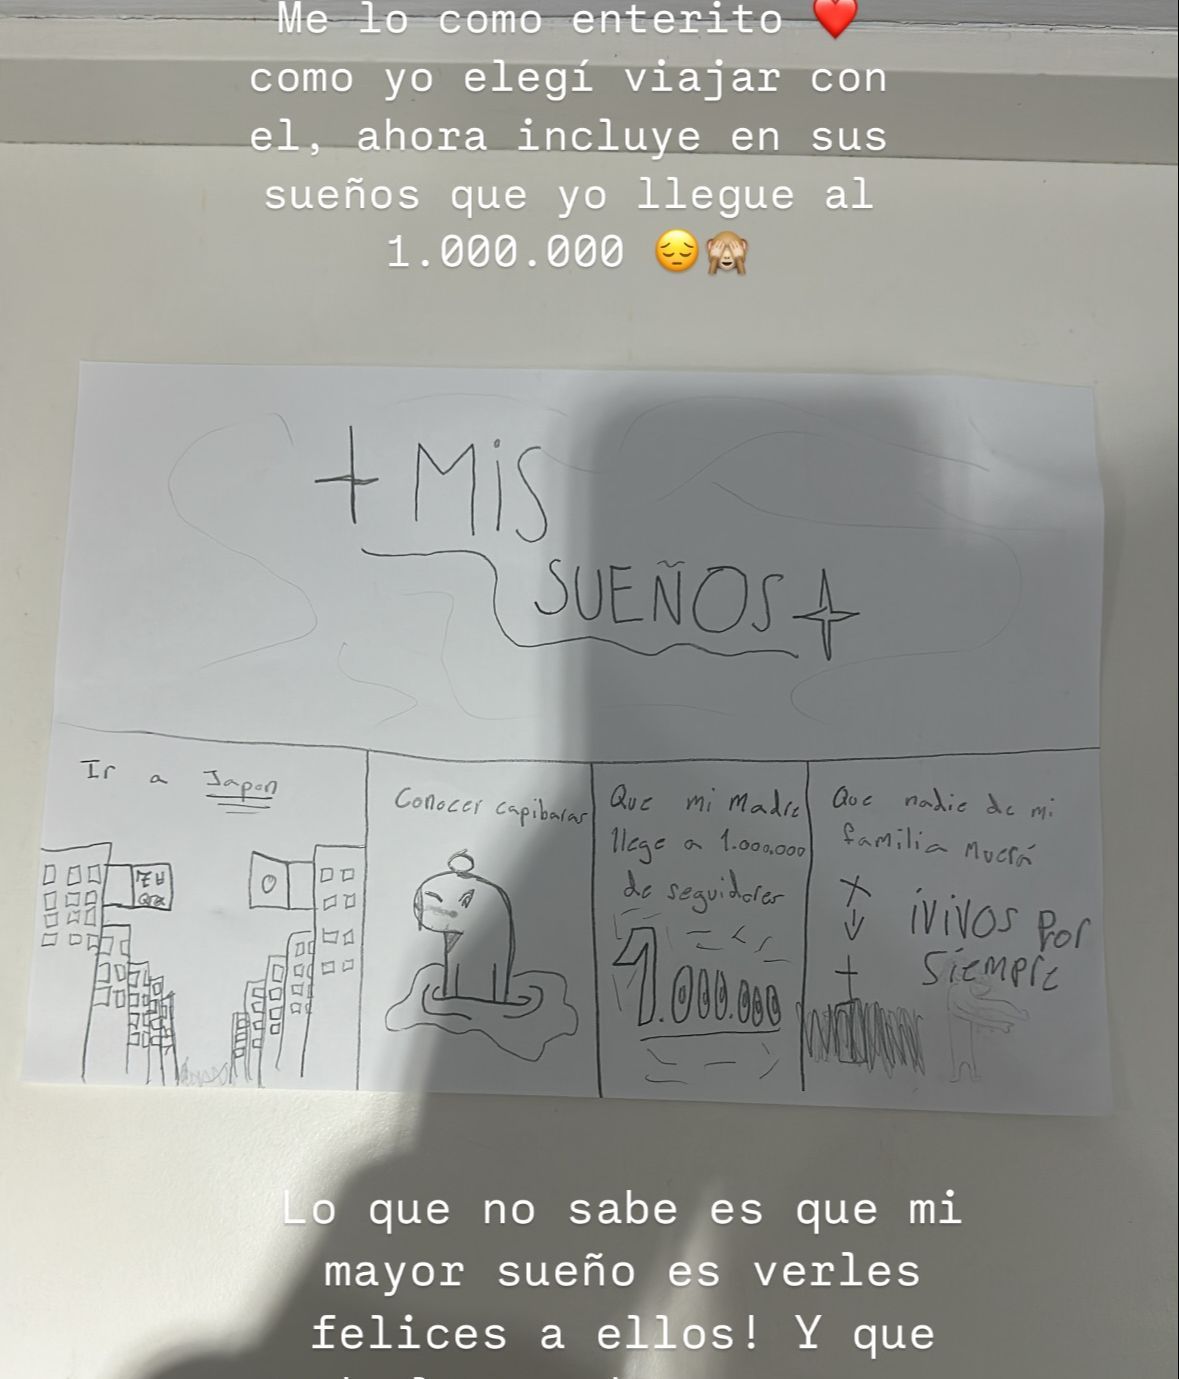 Me lo como enterito ❤️
como yo elegí viajar con
el, ahora incluye en sus
sueños que yo llegue al
1.000.000 😔🙈
MiS
SUEÑOS
Ir a Japon
Conocer capibaras
Que mi madre
llege a 1.000.000
de seguidores
1.000.000
Que nadie de mi
familia muera
¡ViVOS Por
Siempre
Lo que no sabe es que mi
mayor sueño es verles
felices a ellos! Y que